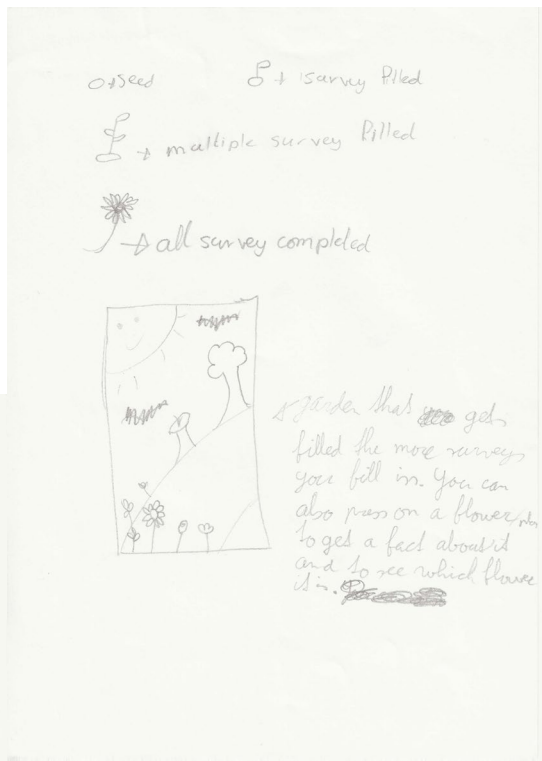 seed
1 survey filled
multiple survey filled
all survey completed
garden that gets
filled the more surveys
you fill in. You can
also press on a flower
to get a fact about it
and to see which flower
it is.